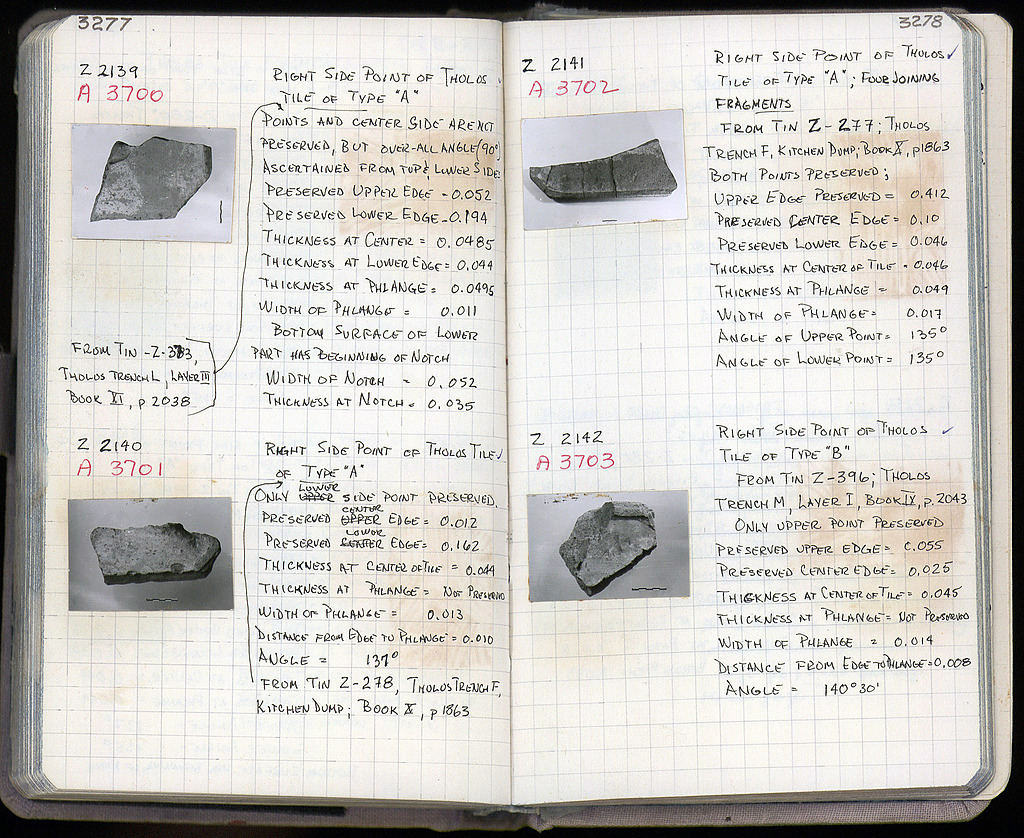 3277
Z 2139
A 3700
RIGHT SIDE POINT OF THOLOS
TILE OF TYPE "A"
POINTS AND CENTER SIDE ARE NOT
PRESERVED, BUT OVER-ALL ANGLE (90°)
ASCERTAINED FROM TOP & LOWER SIDE.
PRESERVED UPPER EDGE - 0.052
PRESERVED LOWER EDGE - 0.194
THICKNESS AT CENTER = 0.0485
THICKNESS AT LOWER EDGE = 0.044
THICKNESS AT PHLANGE = 0.0495
WIDTH OF PHLANGE = 0.011
BOTTOM SURFACE OF LOWER
PART HAS BEGINNING OF NOTCH
WIDTH OF NOTCH = 0.052
THICKNESS AT NOTCH = 0.035
FROM TIN - Z-383,
THOLOS TRENCH L, LAYER III
BOOK XI, p 2038
Z 2140
A 3701
RIGHT SIDE POINT OF THOLOS TILE
OF TYPE "A"
ONLY UPPER LOWER SIDE POINT PRESERVED.
PRESERVED UPPER CENTER EDGE = 0.012
PRESERVED CENTER LOWER EDGE = 0.162
THICKNESS AT CENTER OF TILE = 0.044
THICKNESS AT PHLANGE = NOT PRESERVED
WIDTH OF PHLANGE = 0.013
DISTANCE FROM EDGE TO PHLANGE = 0.010
ANGLE = 137°
FROM TIN Z-278, THOLOS TRENCH F,
KITCHEN DUMP; BOOK X, p 1863
3278
Z 2141
A 3702
RIGHT SIDE POINT OF THOLOS ✓
TILE OF TYPE "A"; FOUR JOINING
FRAGMENTS
FROM TIN Z-277; THOLOS
TRENCH F, KITCHEN DUMP; BOOK X, p1863
BOTH POINTS PRESERVED;
UPPER EDGE PRESERVED = 0.412
PRESERVED CENTER EDGE = 0.10
PRESERVED LOWER EDGE = 0.046
THICKNESS AT CENTER OF TILE = 0.046
THICKNESS AT PHLANGE = 0.049
WIDTH OF PHLANGE = 0.017
ANGLE OF UPPER POINT = 135°
ANGLE OF LOWER POINT = 135°
Z 2142
A 3703
RIGHT SIDE POINT OF THOLOS ✓
TILE OF TYPE "B"
FROM TIN Z-396; THOLOS
TRENCH M, LAYER I, BOOK IX, p. 2043
ONLY UPPER POINT PRESERVED
PRESERVED UPPER EDGE = 0.055
PRESERVED CENTER EDGE = 0.025
THICKNESS AT CENTER OF TILE = 0.045
THICKNESS AT PHLANGE = NOT PRESERVED
WIDTH OF PHLANGE = 0.014
DISTANCE FROM EDGE TO PHLANGE = 0.008
ANGLE = 140°30'